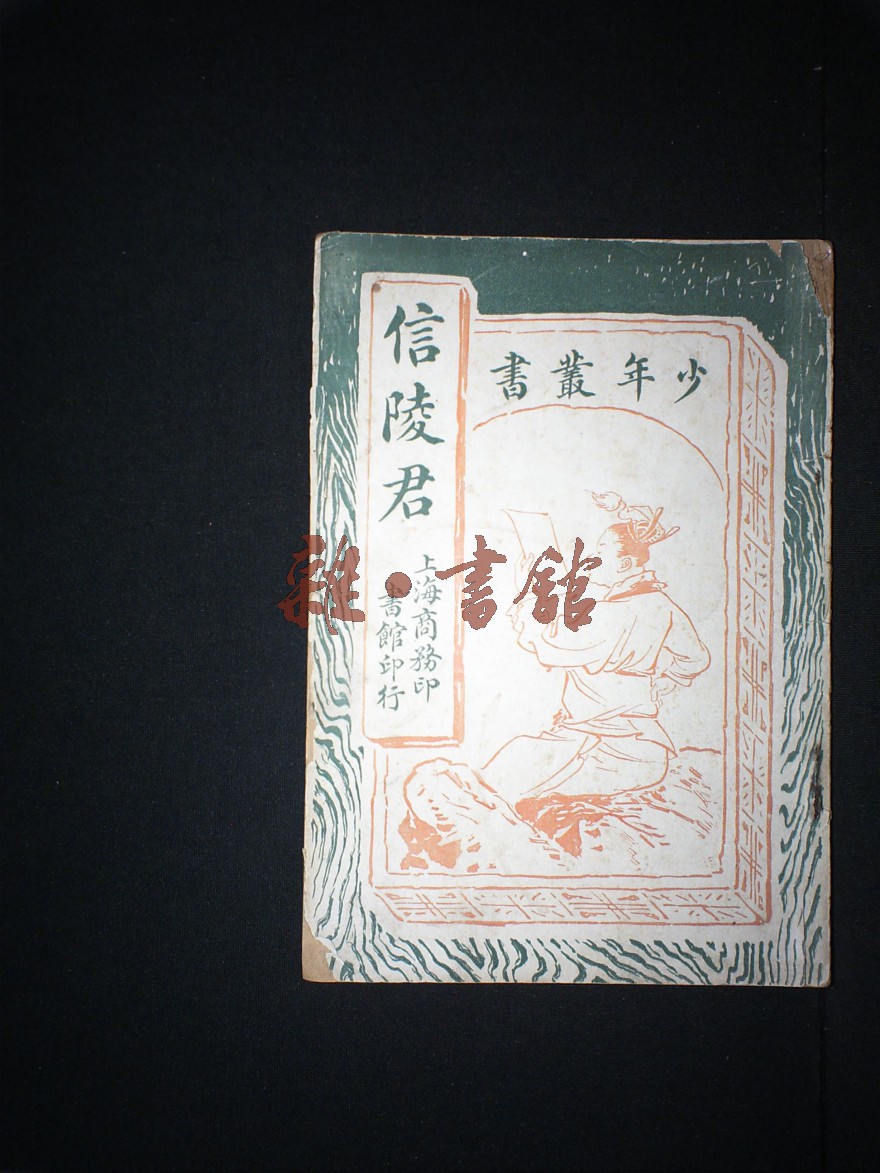 少年叢書
信陵君
上海商務印
書館印行
雜·書館